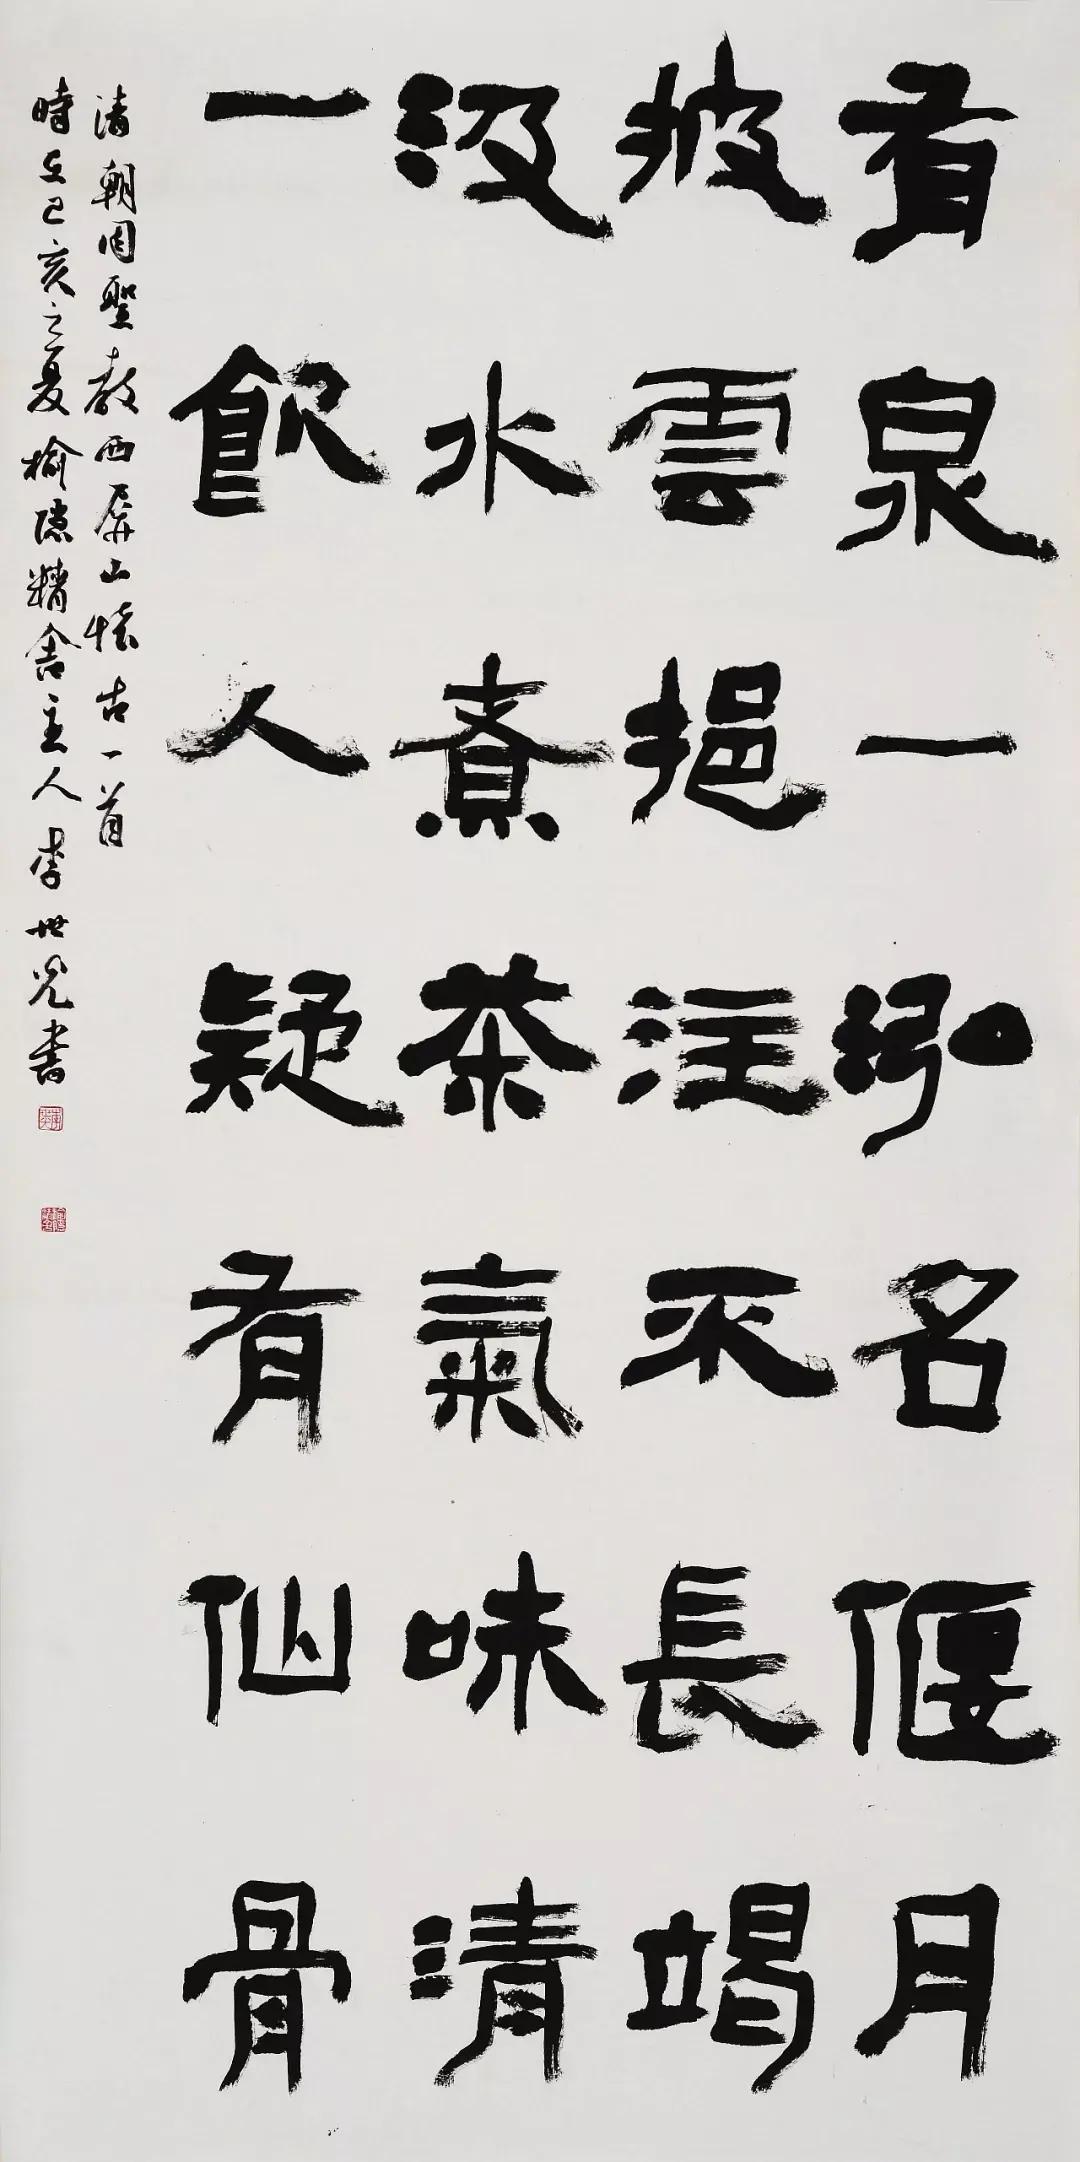 有泉一泓名偃月
披雲挹注不長竭
汲水煮茶氣味清
一飲人疑有仙骨
清朝周聖教西屏山懷古一首
時在己亥之夏榆隱精舍主人李世光書